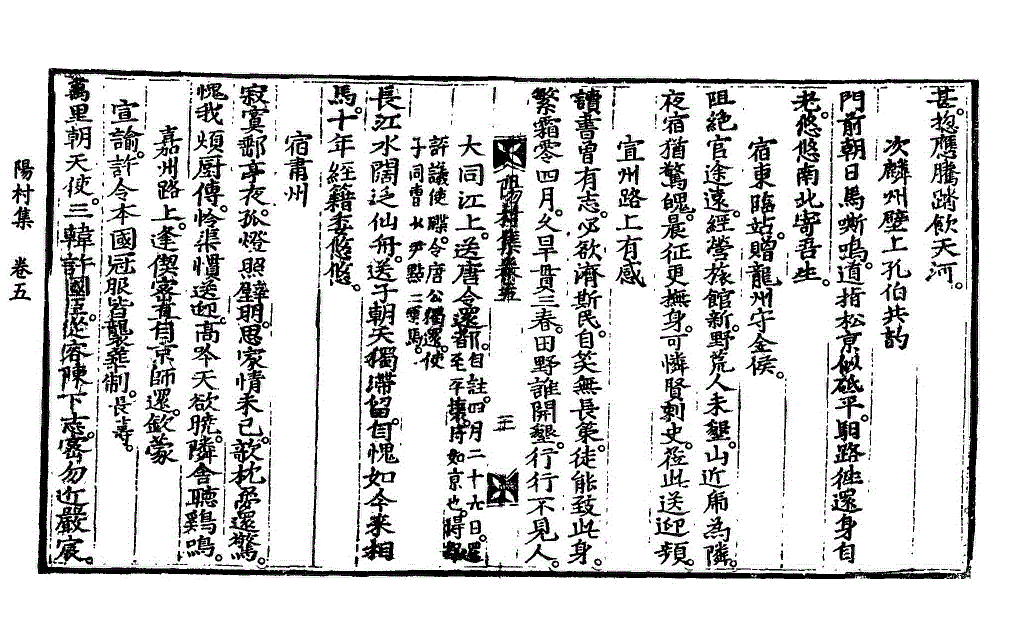 甚。摠應騰踏飮天河。
次麟州壁上孔伯共韵
門前朝日馬嘶鳴。道指松京似砥平。駟路徃還身自
老。悠悠南北寄吾生。
宿東臨站。贈龍州守金侯。
阻絶官途遠。經營旅館新。野荒人未墾。山近虎爲隣。
夜宿猶驚魄。晨征更撫身。可憐賢刺史。莅此送迎頻。
宣州路上有感
讀書曾有志。必欲濟斯民。自笑無長策。徒能致此身。
繁霜零四月。久旱貫三春。田野誰開墾。行行不見人。
大同江上。送唐令還都。自註。四月二十六日。還
者至平壤。時如京也。
評議使牒。令唐公獨還。使
子同曹
點二
馬。
長江水闊泛仙舟。送子朝天獨滯留。自愧如今來相
馬。十年經籍奎悠悠。
宿肅州
寂寞郵亭夜。孤燈照壁明。思家情未已。欹枕夢還驚。
愧我煩厨傳。怜渠慣送迎。高岑天欲曉。隣舍聽鷄鳴。
嘉州路上。逢偰密直自京師還。欽蒙
宣諭。許令本國冠服皆襲華制。長壽。
萬里朝天使。三韓許國臣。從容陳下志。密勿近嚴宸。
陽村集 卷五